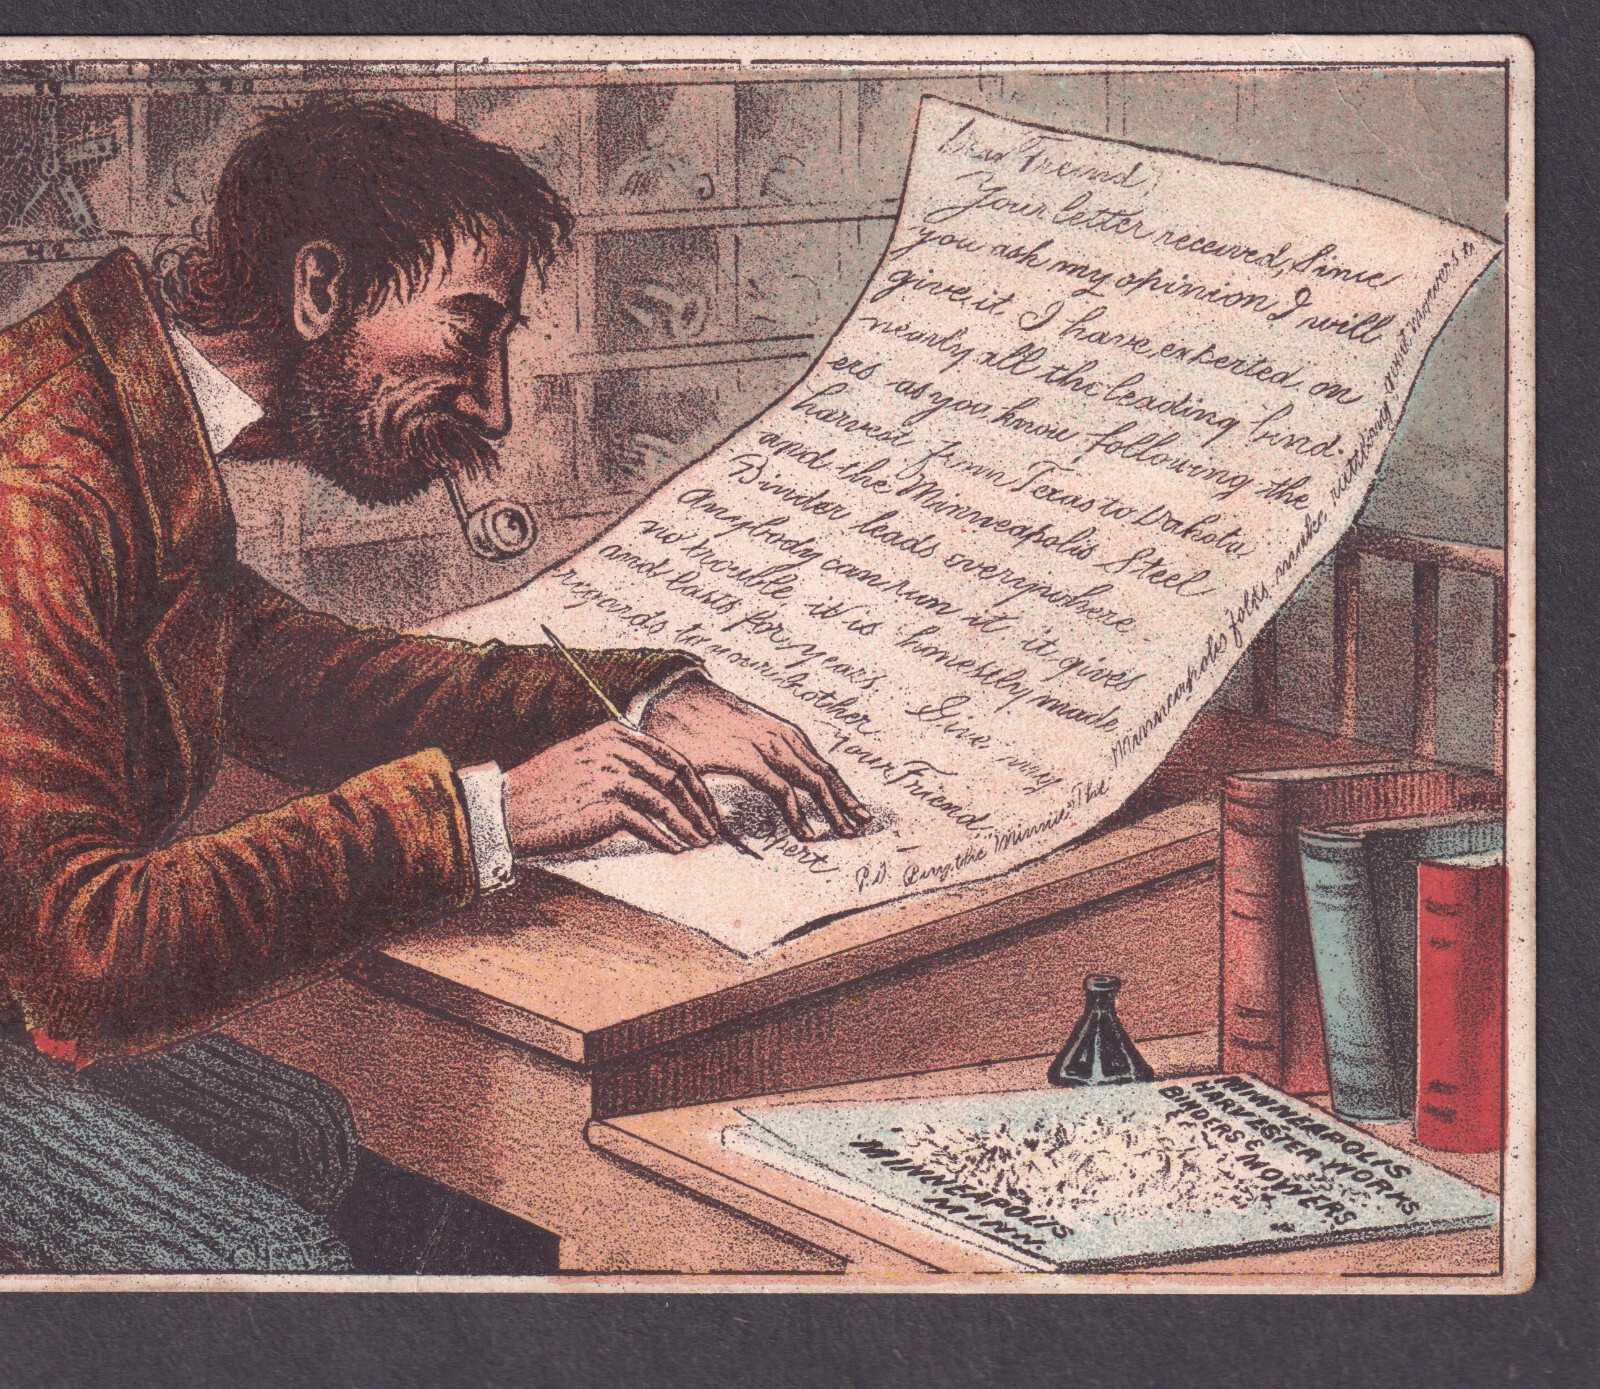 Dear Freind;
Your letter received, Since
you ask my opinion I will
give it. I have experted on
nearly all the leading bind-
ers as you know following the
harvest from Texas to Dakota
and the Minneapolis Steel
Binder leads everywhere.
Anybody can run it it gives
no trouble it is honestly made
and lasts for years. Give my
regards to your brother
Your Friend.
xpert
P.S. Buy the "Minnie" The Minneapolis folds, makes, mowers
42
MINNEAPOLIS
HARVESTER WORKS
BINDERS & MOWERS
MINNEAPOLIS
MINN.